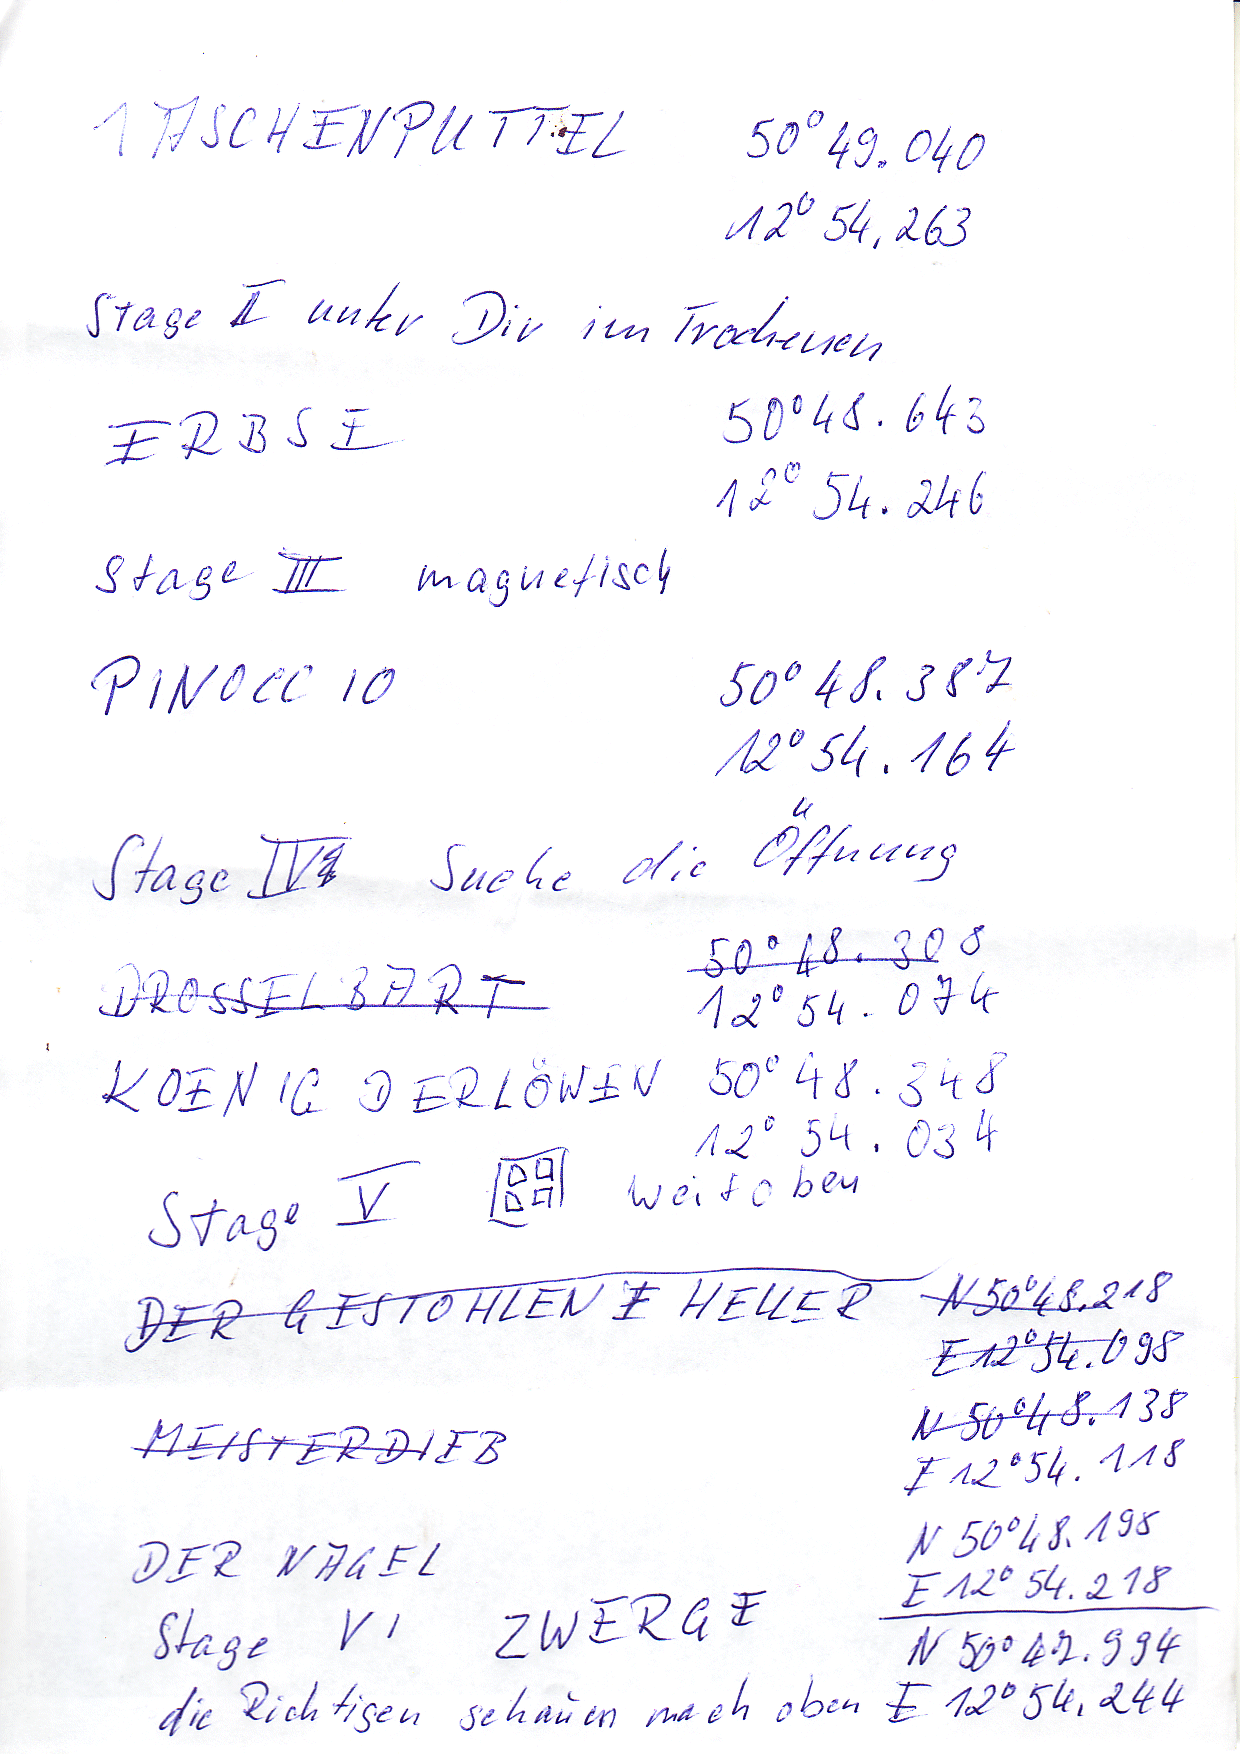 1 ASCHENPUTTEL 50° 49.040
12° 54.263
Stage II unter Dir im Trockenen
ERBSE 50° 48.643
12° 54.246
Stage III magnetisch
PINOCC IO 50° 48.387
12° 54.164
Stage IV Suche die Öffnung
DROSSELBART 50° 48.308
12° 54.074
KOENIG DERLÖWEN 50° 48.348
12° 54.034
Stage V weit oben
DER GESTOHLENE HELLER N 50° 48.218
E 12° 54.098
MEISTERDIEB N 50° 48.138
E 12° 54.118
DER NAGEL N 50° 48.198
E 12° 54.218
Stage VI ZWERGE N 50° 47.994
die Richtigen schauen nach oben E 12° 54.244